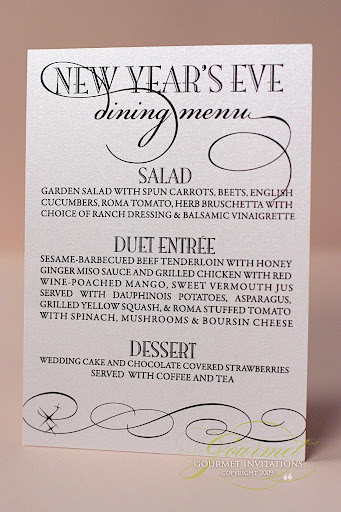 NEW YEAR'S EVE
dining menu
SALAD
GARDEN SALAD WITH SPUN CARROTS, BEETS, ENGLISH
CUCUMBERS, ROMA TOMATO, HERB BRUSCHETTA WITH
CHOICE OF RANCH DRESSING & BALSAMIC VINAIGRETTE
DUET ENTRÉE
SESAME-BARBECUED BEEF TENDERLOIN WITH HONEY
GINGER MISO SAUCE AND GRILLED CHICKEN WITH RED
WINE-POACHED MANGO, SWEET VERMOUTH JUS
SERVED WITH DAUPHINOIS POTATOES, ASPARAGUS,
GRILLED YELLOW SQUASH, & ROMA STUFFED TOMATO
WITH SPINACH, MUSHROOMS & BOURSIN CHEESE
DESSERT
WEDDING CAKE AND CHOCOLATE COVERED STRAWBERRIES
SERVED WITH COFFEE AND TEA
Gourmet
GOURMET INVITATIONS
COPYRIGHT 2009